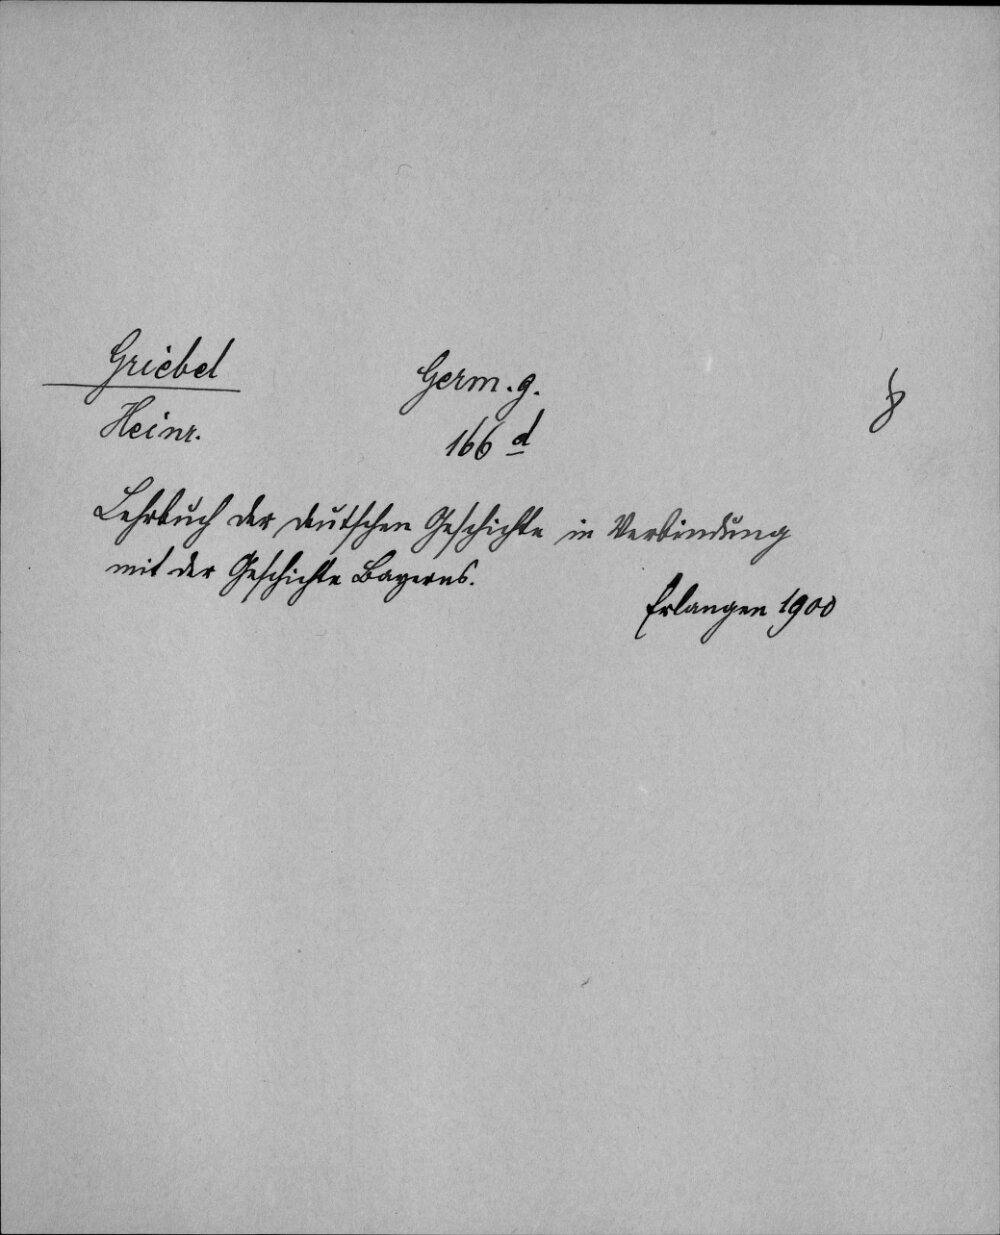 Griebel
Germ. g.
8
Heinr.
166 d
Lehrbuch der deutschen Geschichte in Verbindung
mit der Geschichte Bayerns.
Erlangen 1900